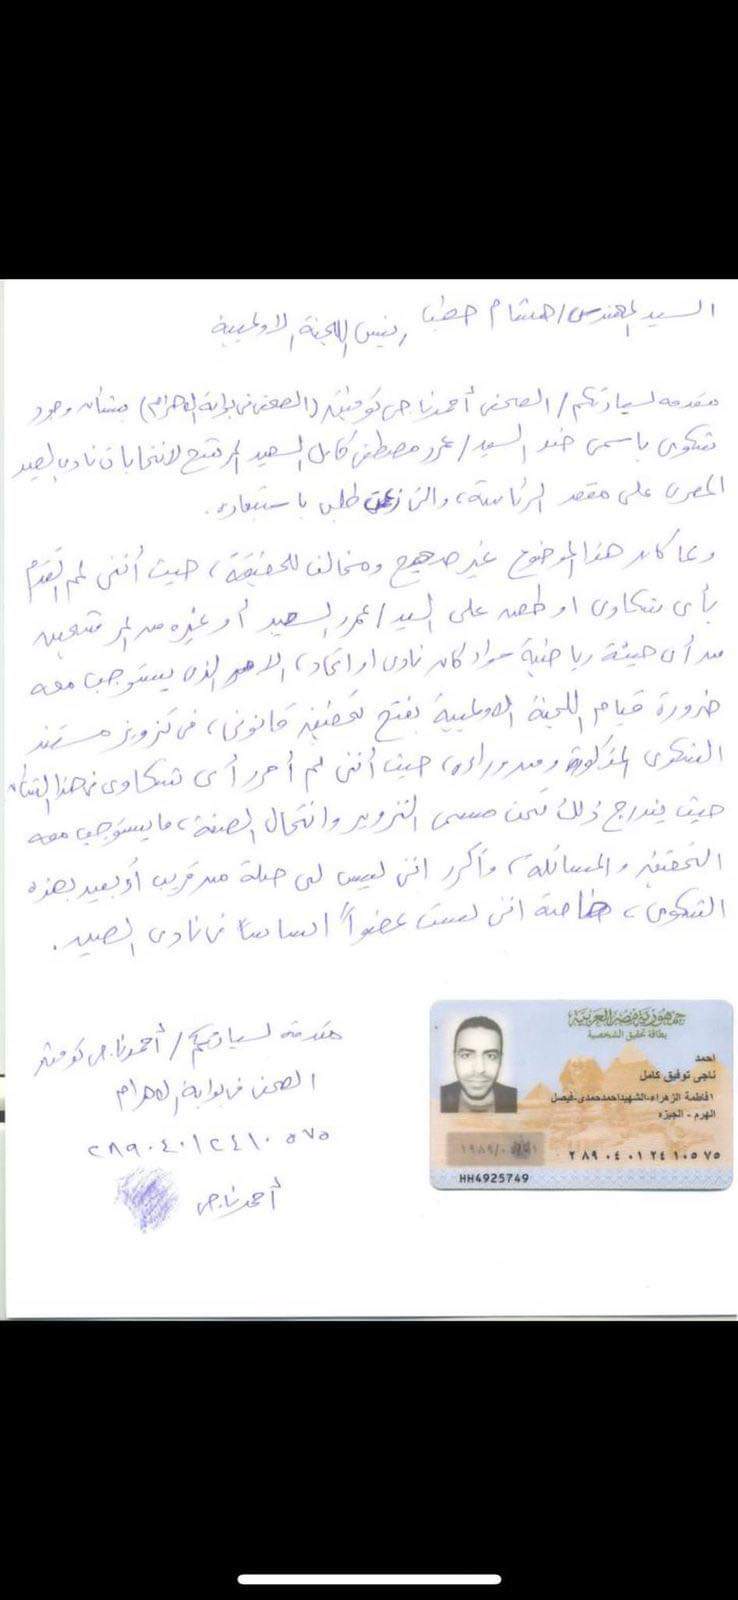 السيد المهندس/ هشام حطب رئيس اللجنة الاولمبية
مقدمه لسيادتكم/ الصحفى أحمد ناجى توفيق (الصحفى فى بوابة الاهرام) بشأن وجود
شكوى باسمى ضد السيد/ عمرو مصطفى كامل السعيد المرشح لانتخابات نادى الصيد
المصرى على مقعد الرئاسة، والتى طلب باستبعاده.
وما كان هذا الموضوع غير صحيح ومخالف للحقيقة، حيث أننى لم أتقدم
بأى شكاوى او طعن على السيد/ عمرو السعيد أو غيره من المرشحين
من أى هيئة رياضية سواء كان نادى او اتحاد، الامر الذى يستوجب معه
ضرورة قيام اللجنة الاولمبية بفتح تحقيق قانونى، فى تزوير مستند
الشكوى المذكورة ومن وراءه، حيث أننى لم أحرر أى شكاوى فى هذا الشأن
حيث يندرج ذلك تحت مسمى التزوير وانتحال الصفة، ما يستوجب معه
التحقيق والمسائلة، وأكرر اننى ليس لى صلة من قريب أو بعيد بهذه
الشكوى، خاصة اننى لست عضواً اساسا فى نادى الصيد.
مقدمه لسيادتكم/ أحمد ناجى توفيق
الصحفى فى بوابة الاهرام
٢٨٩٠٤٠١٢٤١٠٥٧٥
أحمد ناجى
جمهورية مصر العربية
بطاقة تحقيق الشخصية
احمد
ناجى توفيق كامل
١ فاطمة الزهراء-الشهيد احمد حمدى-فيصل
الهرم - الجيزه
٢٨٩٠٤٠١٢٤١٠٥٧٥
HH4925749